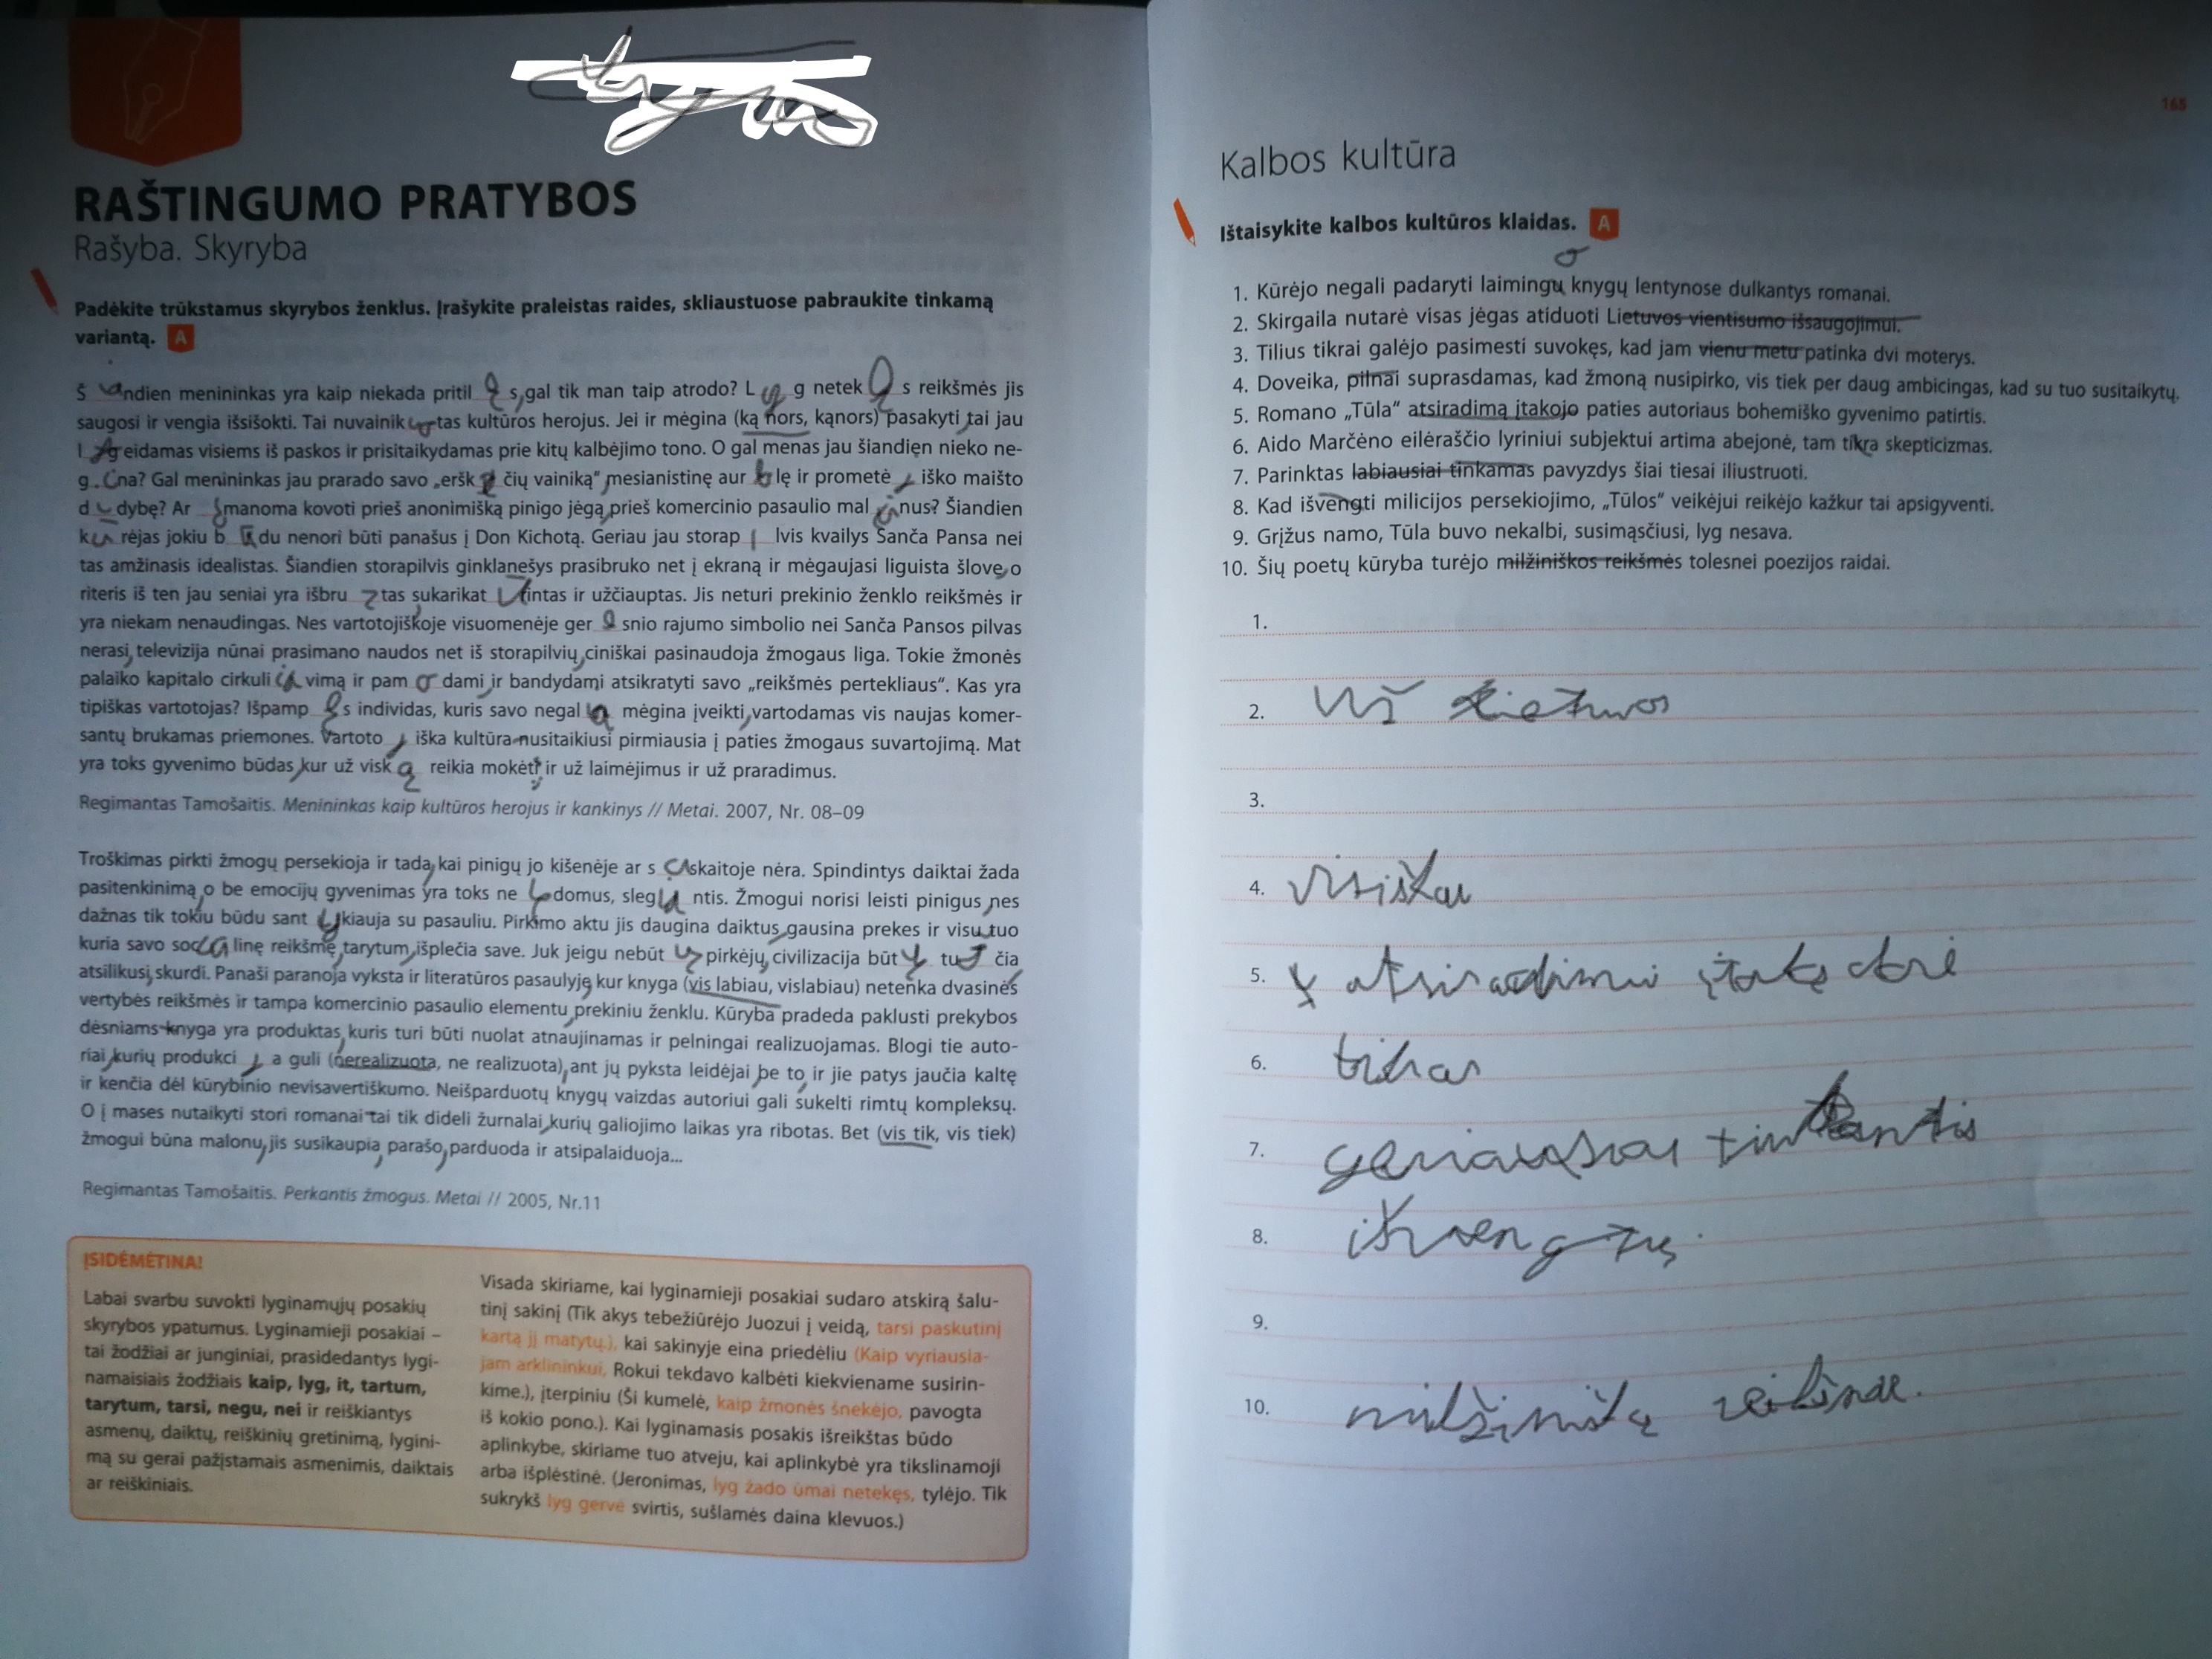 168
RAŠTINGUMO PRATYBOS
Rašyba. Skyryba
Padėkite trūkstamus skyrybos ženklus. Įrašykite praleistas raides, skliaustuose pabraukite tinkamą
variantą. A
Šiandien menininkas yra kaip niekada pritilęs, gal tik man taip atrodo? Lyg netekęs reikšmės jis
saugosi ir vengia išsišokti. Tai nuvainikuotas kultūros herojus. Jei ir mėgina (ką nors, kąnors) pasakyti, tai jau
lygeidamas visiems iš paskos ir prisitaikydamas prie kitų kalbėjimo tono. O gal menas jau šiandien nieko ne-
gina? Gal menininkas jau prarado savo „erškėčių vainiką", mesianistinę aureolę ir prometėjiško maišto
didybę? Ar įmanoma kovoti prieš anonimišką pinigo jėgą, prieš komercinio pasaulio malūnus? Šiandien
kūrėjas jokiu būdu nenori būti panašus į Don Kichotą. Geriau jau storapilvis kvailys Sanča Pansa nei
tas amžinasis idealistas. Šiandien storapilvis ginklanešys prasibruko net į ekraną ir mėgaujasi liguista šlove, o
riteris iš ten jau seniai yra išbruztas, sukarikatūrintas ir užčiauptas. Jis neturi prekinio ženklo reikšmės ir
yra niekam nenaudingas. Nes vartotojiškoje visuomenėje geresnio rajumo simbolio nei Sanča Pansos pilvas
nerasi, televizija nūnai prasimano naudos net iš storapilvių, ciniškai pasinaudoja žmogaus liga. Tokie žmonės
palaiko kapitalo cirkuliavimą ir pamodami, ir bandydami atsikratyti savo „reikšmės pertekliaus". Kas yra
tipiškas vartotojas? Išpampęs individas, kuris savo negalią mėgina įveikti, vartodamas vis naujas komer-
santų brukamas priemones. Vartotojiška kultūra nusitaikiusi pirmiausia į paties žmogaus suvartojimą. Mat
yra toks gyvenimo būdas, kur už viską reikia mokėti: ir už laimėjimus ir už praradimus.
Regimantas Tamošaitis. Menininkas kaip kultūros herojus ir kankinys // Metai. 2007, Nr. 08–09
Troškimas pirkti žmogų persekioja ir tada, kai pinigų jo kišenėje ar sąskaitoje nėra. Spindintys daiktai žada
pasitenkinimą, o be emocijų gyvenimas yra toks neįdomus, slegiantis. Žmogui norisi leisti pinigus, nes
dažnas tik tokiu būdu santykiauja su pasauliu. Pirkimo aktu jis daugina daiktus, gausina prekes ir visu tuo
kuria savo socialinę reikšmę, tarytum išplečia save. Juk jeigu nebūtų pirkėjų, civilizacija būtų tuščia
atsilikusi, skurdi. Panaši paranoja vyksta ir literatūros pasaulyje, kur knyga (vis labiau, vislabiau) netenka dvasinės
vertybės reikšmės ir tampa komercinio pasaulio elementu, prekiniu ženklu. Kūryba pradeda paklusti prekybos
dėsniams – knyga yra produktas, kuris turi būti nuolat atnaujinamas ir pelningai realizuojamas. Blogi tie auto-
riai, kurių produkcija guli (nerealizuota, ne realizuota), ant jų pyksta leidėjai, be to, ir jie patys jaučia kaltę
ir kenčia dėl kūrybinio nevisavertiškumo. Neišparduotų knygų vaizdas autoriui gali sukelti rimtų kompleksų.
O į mases nutaikyti stori romanai – tai tik dideli žurnalai, kurių galiojimo laikas yra ribotas. Bet (vis tik, vis tiek)
žmogui būna malonu, jis susikaupia, parašo, parduoda ir atsipalaiduoja...
Regimantas Tamošaitis. Perkantis žmogus. Metai // 2005, Nr.11
ĮSIDĖMĖTINA!
Labai svarbu suvokti lyginamųjų posakių
skyrybos ypatumus. Lyginamieji posakiai –
tai žodžiai ar junginiai, prasidedantys lygi-
namaisiais žodžiais kaip, lyg, it, tartum,
tarytum, tarsi, negu, nei ir reiškiantys
asmenų, daiktų, reiškinių gretinimą, lygini-
mą su gerai pažįstamais asmenimis, daiktais
ar reiškiniais.
Visada skiriame, kai lyginamieji posakiai sudaro atskirą šalu-
tinį sakinį (Tik akys tebežiūrėjo Juozui į veidą, tarsi paskutinį
kartą jį matytų.), kai sakinyje eina priedėliu (Kaip vyriausia-
jam arklininkui, Rokui tekdavo kalbėti kiekviename susirin-
kime.), įterpiniu (Ši kumelė, kaip žmonės šnekėjo, pavogta
iš kokio pono.). Kai lyginamasis posakis išreikštas būdo
aplinkybe, skiriame tuo atveju, kai aplinkybė yra tikslinamoji
arba išplėstinė. (Jeronimas, lyg žado ūmai netekęs, tylėjo. Tik
sukrykš lyg gervė svirtis, sušlamės daina klevuos.)
Kalbos kultūra
Ištaisykite kalbos kultūros klaidas. A
o
1. Kūrėjo negali padaryti laimingu knygų lentynose dulkantys romanai.
2. Skirgaila nutarė visas jėgas atiduoti Lietuvos vientisumo išsaugojimui.
3. Tilius tikrai galėjo pasimesti suvokęs, kad jam vienu metu patinka dvi moterys.
4. Doveika, pilnai suprasdamas, kad žmoną nusipirko, vis tiek per daug ambicingas, kad su tuo susitaikytų.
5. Romano „Tūla" atsiradimą įtakojo paties autoriaus bohemiško gyvenimo patirtis.
6. Aido Marčėno eilėraščio lyriniui subjektui artima abejonė, tam tikra skepticizmas.
7. Parinktas labiausiai tinkamas pavyzdys šiai tiesai iliustruoti.
8. Kad išvengti milicijos persekiojimo, „Tūlos" veikėjui reikėjo kažkur tai apsigyventi.
9. Grįžus namo, Tūla buvo nekalbi, susimąsčiusi, lyg nesava.
10. Šių poetų kūryba turėjo milžiniškos reikšmės tolesnei poezijos raidai.
1.
2. Už Lietuvos
3.
4. visiškai
5. atsiradimui įtaką darė
6. tikras
7. geriausiai tinkantis
8. išvengtų.
9.
10. milžinišką reikšmę.